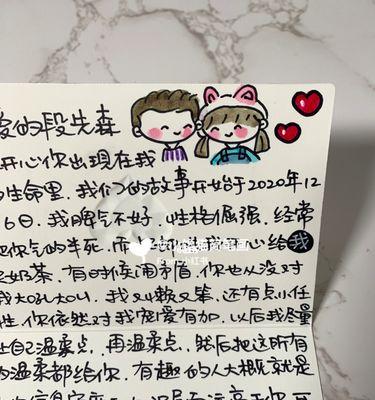 爱的段先森
开心你出现在我
生命里. 我们的故事开始于2020年12
6日. 我脾气不好, 性格倔强, 经常
把你气的半死, 而 心给我
奶茶, 有时候闹矛盾, 你也从没对
我大吼大叫, 我又懒又笨, 还有点小任
性, 你依然对我宠爱有加, 以后我尽量
让自己温柔点, 再温柔点, 然后把这所有
的温柔都给你, 有趣的人大概就是